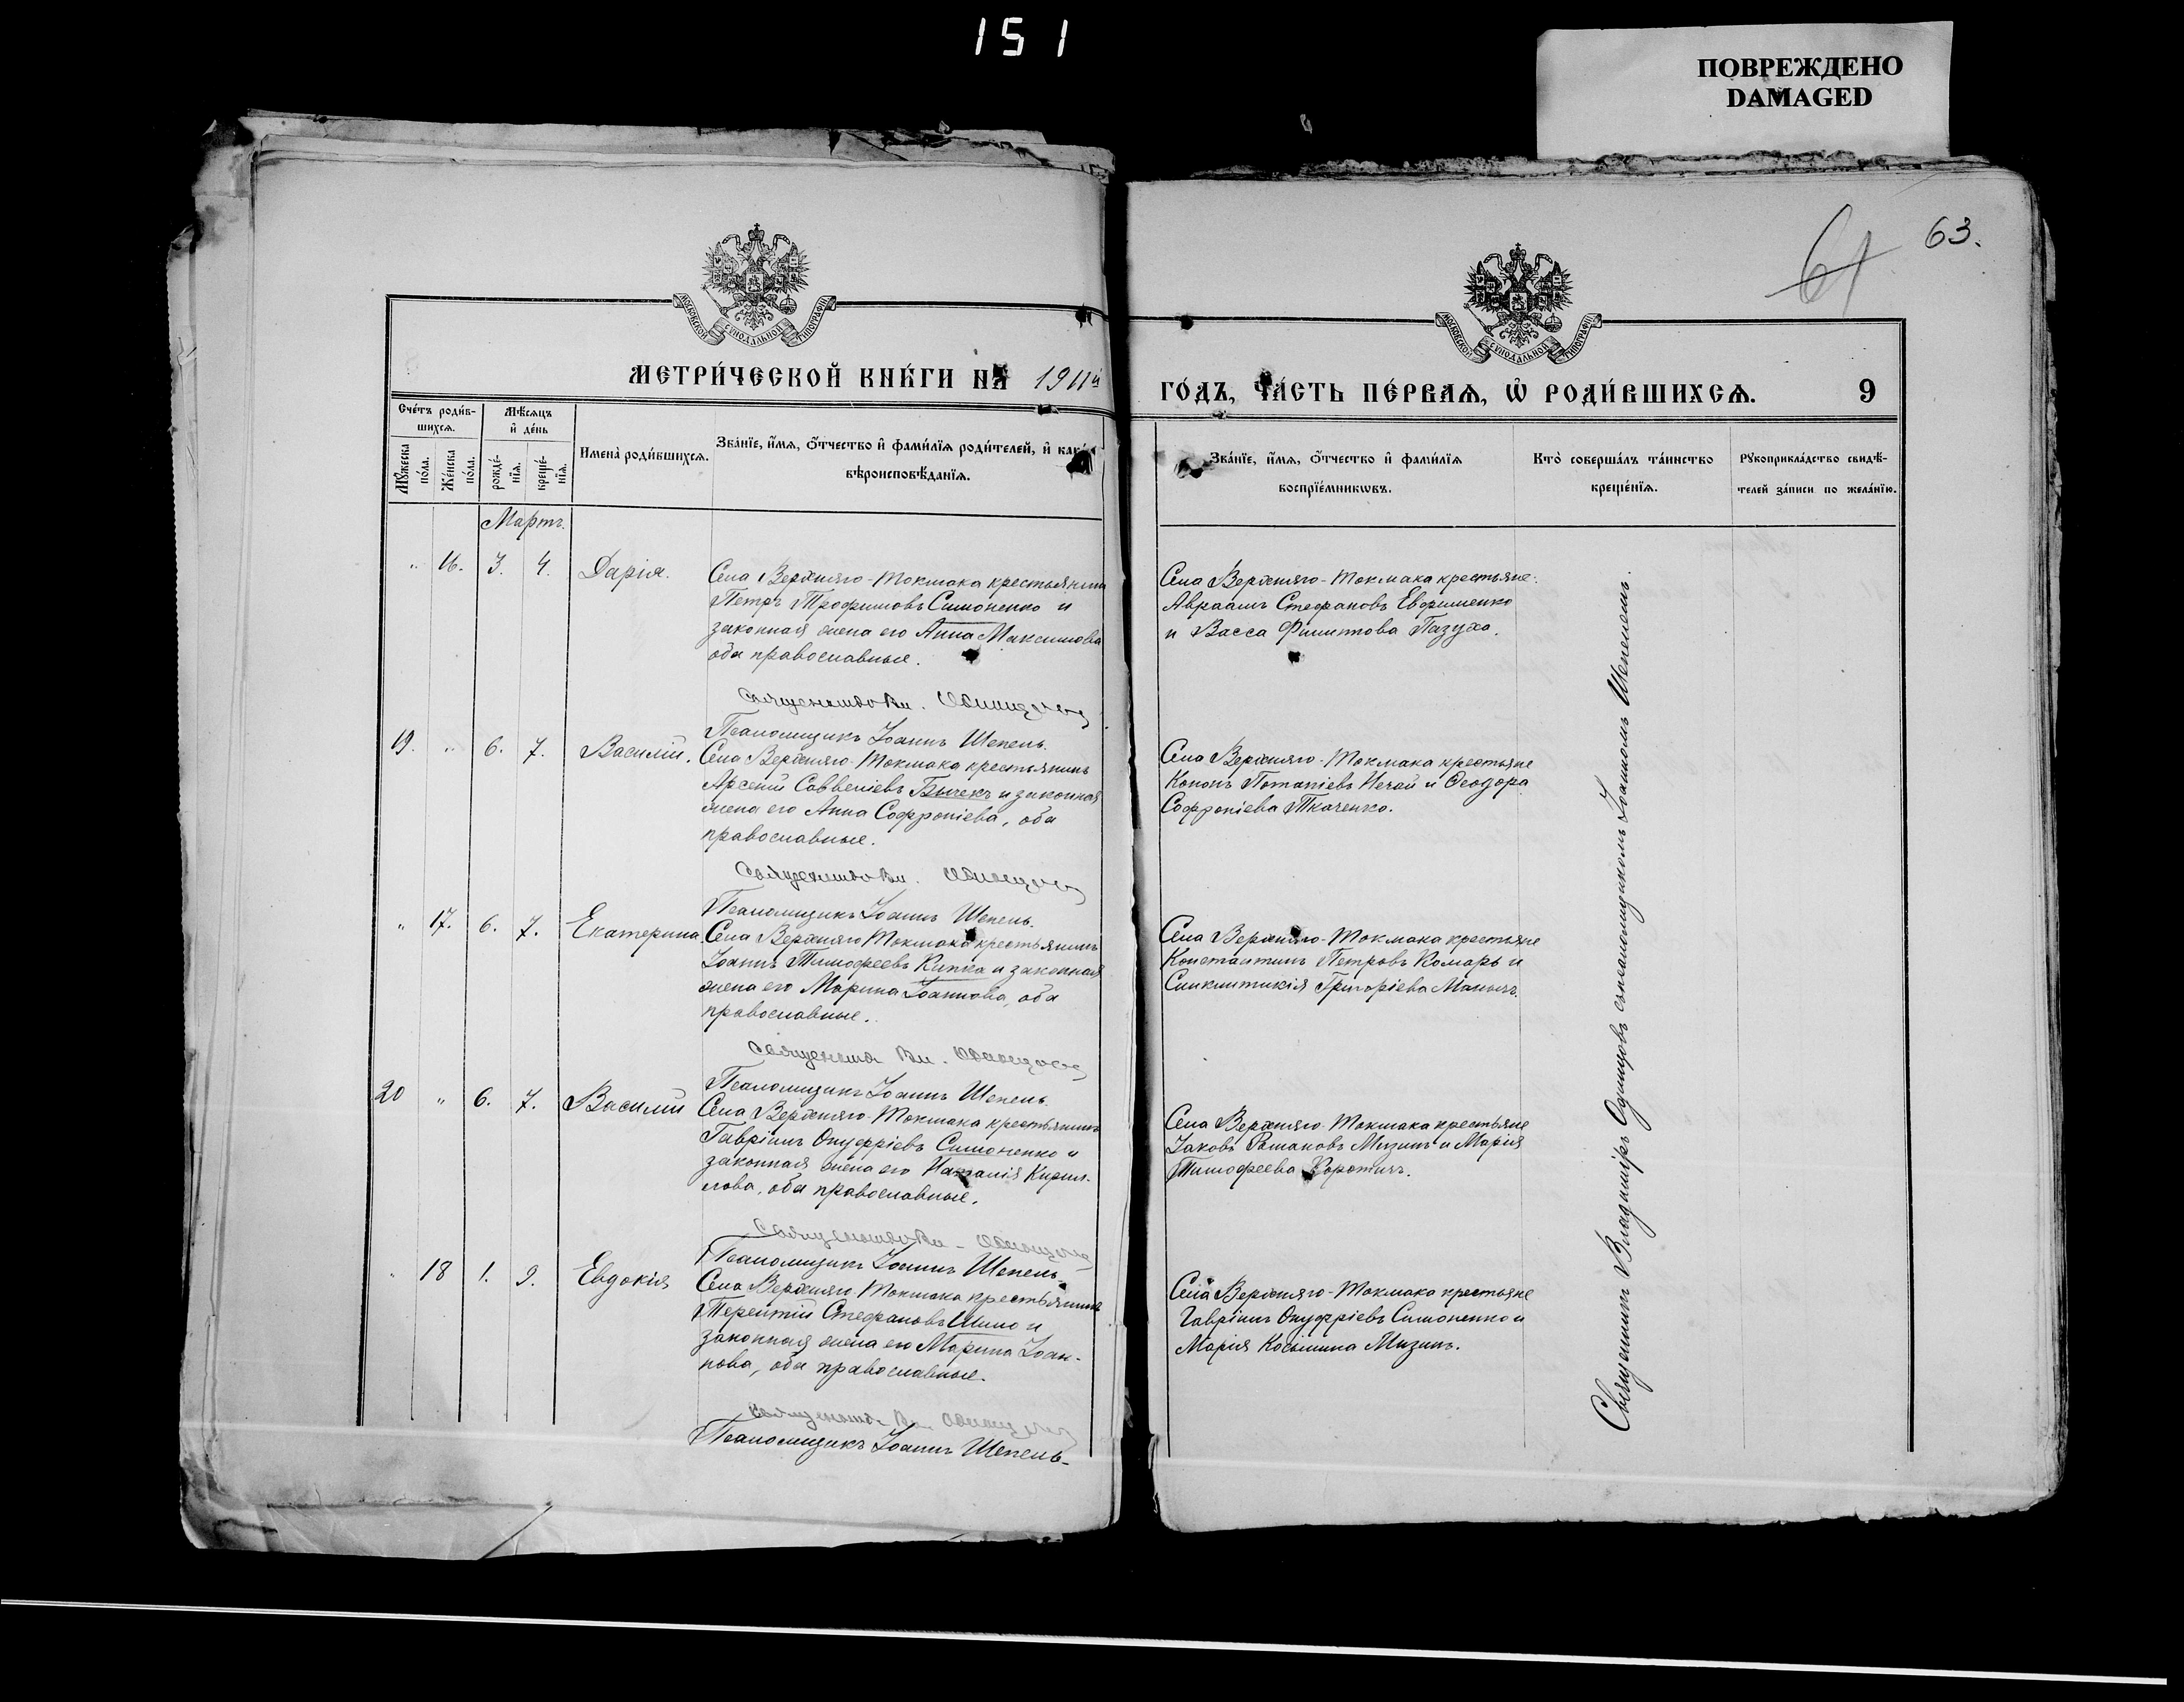 151
ПОВРЕЖДЕНО
DAMAGED
63.
61
МОСКОВСКОЙ СѴНОДАЛЬНОЙ ТИПОГРАФІИ
МОСКОВСКОЙ СѴНОДАЛЬНОЙ ТИПОГРАФІИ
МЕТРИ́ЧЕСКОЙ КНИ́ГИ НА 1911й
ГО́ДЪ, ЧА́СТЬ ПЕ́РВАѦ, Ѡ РОДИ́ВШИХСѦ. 9
Сче́тъ роди́в-
шихсѧ.
Мꙋ́жеска по́ла.
Же́нска по́ла.
Мѣ́сѧцъ
и҆ де́нь
рожде́-
нїѧ.
креще́-
нїѧ.
Имена̀ роди́вшихсѧ.
Зва́нїе, и҆́мѧ, ѻ҆́тчество и҆ фами́лїѧ роди́телей, и҆
вѣроисповѣ́данїѧ.
Зва́нїе, и҆́мѧ, ѻ҆́тчество и҆ фами́лїѧ
воспрїе́мникѡвъ.
Кто̀ соверша́лъ та́инство
креще́нїѧ.
Рꙋкоприкла́дство свидѣ́-
телей за́писи по жела́нїю.
Мартъ.
" 16. 3. 4. Дарія.
Села Верхняго-Токмака крестьянинъ
Петръ Трофимовъ Симоненко и
законная жена его Анна Максимова
оба православные.
Псаломщикъ Іоаннъ Шепель.
Села Верхняго-Токмака крестьяне:
Авраамъ Стефановъ Ефименко
и Васса Филиппова Пазуха.
19. " 6. 7. Василій.
Села Верхняго-Токмака крестьянинъ
Арсеній Савеліевъ Бычекъ и законная
жена его Анна Софроніева, оба
православные.
Псаломщикъ Іоаннъ Шепель.
Села Верхняго-Токмака крестьяне
Кононъ Потапіевъ Нечай и Ѳеодора
Софроніева Ткаченко.
" 17. 6. 7. Екатерина.
Села Верхняго Токмака крестьянинъ
Іоаннъ Тимофеевъ Кипка и законная
жена его Марина Іоаннова, оба
православные.
Псаломщикъ Іоаннъ Шепель.
Села Верхняго-Токмака крестьяне
Константинъ Петровъ Комаръ и
Синклитикія Григоріева
20 " 6. 7. Василій
Села Верхняго-Токмака крестьянинъ
Гавріилъ Онуфріевъ Симоненко и
законная жена его Наталія Кирил-
лова, оба православные.
Псаломщикъ Іоаннъ Шепель.
Села Верхняго-Токмака крестьяне
Іаковъ Романовъ Мизинъ и Марія
Тимофеева
" 18 1. 9. Евдокія
Села Верхняго-Токмака крестьянинъ
Терентій Стефановъ Шило и
законная жена его Марина Іоан-
нова, оба православные.
Псаломщикъ Іоаннъ Шепель.
Села Верхняго-Токмака крестьяне
Гавріилъ Онуфріевъ Симоненко и
Марія Косьмина Мизинъ.
Священникъ Владиміръ Одинцовъ съ псаломщикомъ Іоанномъ Шепелемъ.